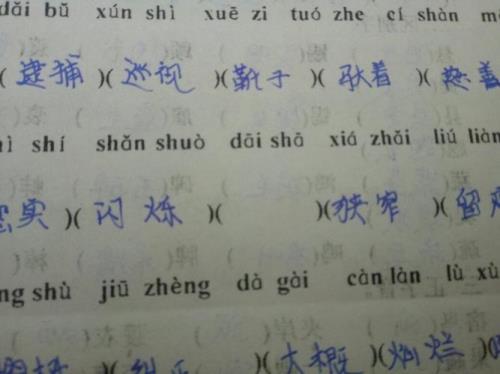 dǎi bǔ xún shì xuē zi tuó zhe cí shàn
(逮捕)(巡视)(靴子)(驮着)(慈善
shí shǎn shuò dāi shā xiá zhǎi liú liàn
实)(闪烁)( )(狭窄)(留
shù jiū zhèng dà gài càn làn lù xù
)(大概)(灿烂)(